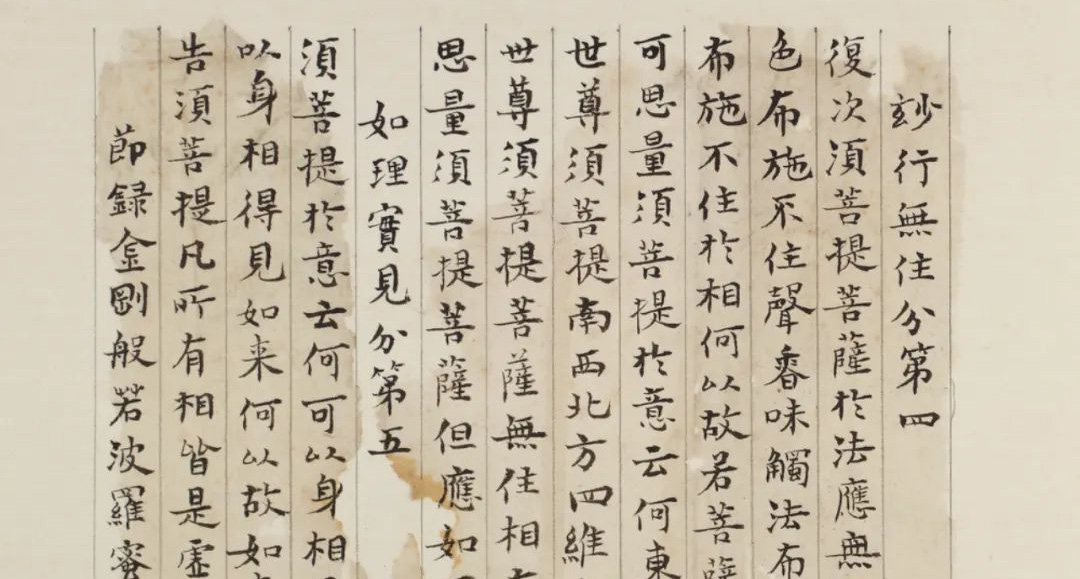 玅行無住分第四
復次須菩提菩薩於法應無
色布施不住聲香味觸法布
布施不住於相何以故若菩薩
可思量須菩提於意云何東
世尊須菩提南西北方四維
世尊須菩提菩薩無住相
思量須菩提菩薩但應如
如理實見分第五
須菩提於意云何可以身相
以身相得見如来何以故如
告須菩提凡所有相皆是虛
節録金剛般若波羅蜜